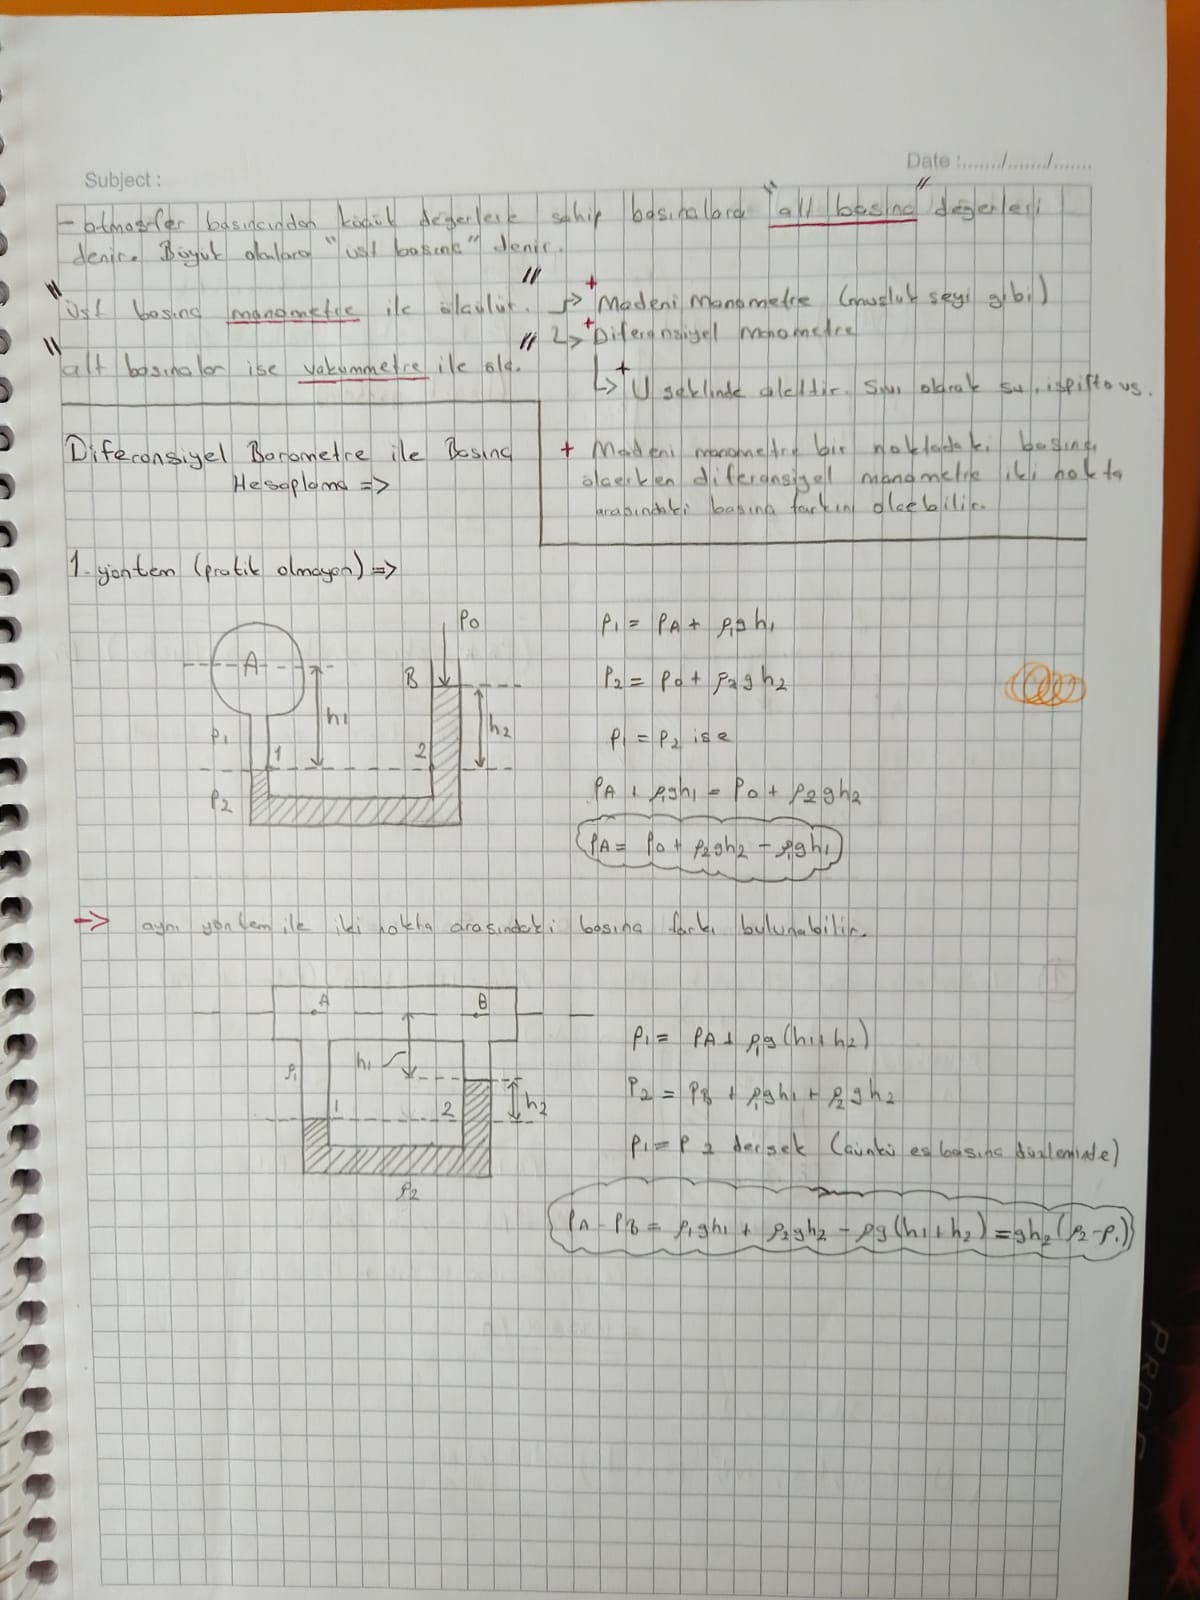 Date :......./......./.......
Subject :
- atmosfer basıncından küçük değerlere sahip basınçlara "alt basınç" değerleri
denir. Büyük olanlara "üst basınç" denir.
"üst basınç manometre ile ölçülür." → + Madeni Manometre (musluk şeyi gibi)
↳ + Diferansiyel manometre
"alt basınçlar ise vakummetre ile ölç."
↳ + U şeklinde alettir. Sıvı olarak su, ispirto vs.
Diferansiyel Barometre ile Basınç
Hesaplama =>
+ Madeni manometre bir noktadaki basınç
ölçerken diferansiyel manometre iki nokta
arasındaki basınç farkını ölçebilir.
1. yöntem (pratik olmayan) =>
P0
A
B
h1
h2
ρ1
1
2
ρ2
P1 = PA + ρ1gh1
P2 = P0 + ρ2gh2
P1 = P2 ise
PA + ρ1gh1 = P0 + ρ2gh2
PA = P0 + ρ2gh2 - ρ1gh1
→ aynı yöntem ile iki nokta arasındaki basınç farkı bulunabilir.
A
B
h1
ρ1
1
2
h2
ρ2
P1 = PA + ρ1g(h1+h2)
P2 = PB + ρ1gh1 + ρ2gh2
P1 = P2 dersek (çünkü eş basınç düzleminde)
PA - PB = ρ1gh1 + ρ2gh2 - ρg(h1+h2) = gh2(ρ2-ρ1)